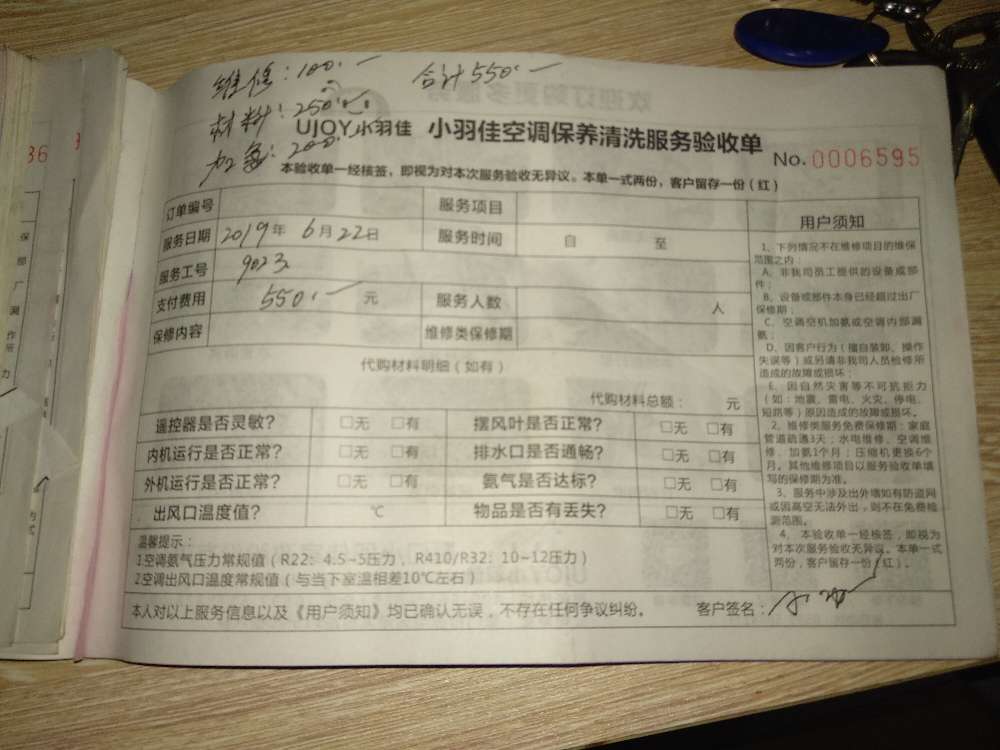 维修：100.—
合计550.—
材料：250.—
加氨：200.—
UJOY 小羽佳 小羽佳空调保养清洗服务验收单
No. 0006595
本验收单一经核签，即视为对本次服务验收无异议。本单一式两份，客户留存一份（红）
订单编号 服务项目
服务日期 2019年 6月22日 服务时间 自 至
服务工号 9023
支付费用 550.— 元 服务人数 人
保修内容 维修类保修期
代购材料明细（如有）
代购材料总额： 元
遥控器是否灵敏？ □无 □有 摆风叶是否正常？ □无 □有
内机运行是否正常？ □无 □有 排水口是否通畅？ □无 □有
外机运行是否正常？ □无 □有 氨气是否达标？ □无 □有
出风口温度值？ ℃ 物品是否有丢失？ □无 □有
温馨提示：
1.空调氨气压力常规值（R22：4.5~5压力，R410/R32：10~12压力）
2.空调出风口温度常规值（与当下室温相差10℃左右）
本人对以上服务信息以及《用户须知》均已确认无误，不存在任何争议纠纷。 客户签名：
用户须知
1、下列情况不在维修项目的维保
范围之内：
A、非我司员工提供的设备或部
件；
B、设备或部件本身已经超过出厂
保修期；
C、空调空机加氨或空调内部漏
氨；
D、因客户行为（擅自装卸、操作
失误等）或另请非我司人员检修所
造成的故障或损坏；
E、因自然灾害等不可抗拒力
（如：地震、雷电、火灾、停电、
短路等）原因造成的故障或损坏。
2、维修类服务免费保修期：家庭
管道疏通3天；水电维修、空调维
修、加氨1个月；压缩机更换6个
月。其他维修项目以服务验收单填
写的保修期为准。
3、服务中涉及出外墙如有防盗网
或因高空无法外出，则不在免费检
测范围。
4、本验收单一经核签，即视为
对本次服务验收无异议。本单一式
两份，客户留存一份（红）。
36